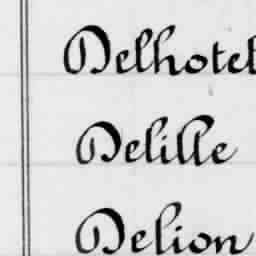 Delhotel
Delille
Delion